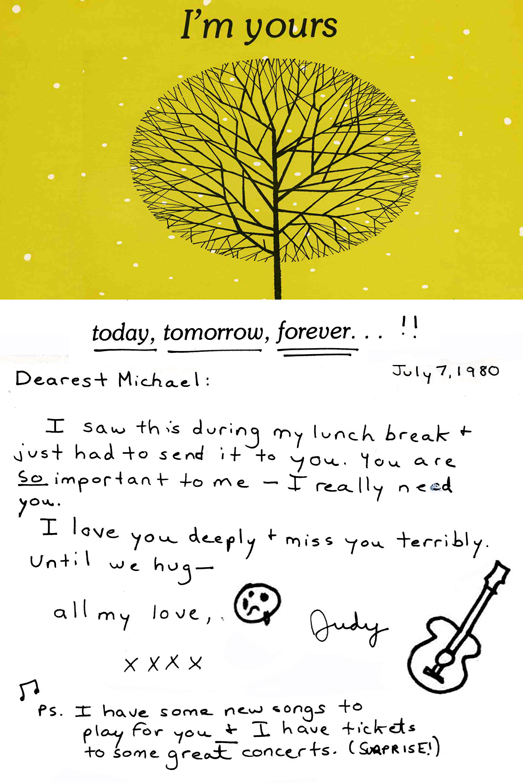 I'm yours
today, tomorrow, forever. . . !!
July 7, 1980
Dearest Michael:
I saw this during my lunch break +
just had to send it to you. You are
so important to me — I really need
you.
I love you deeply + miss you terribly.
Until we hug—
all my love,
Judy
x x x x
Ps. I have some new songs to
play for you + I have tickets
to some great concerts. (SURPRISE!)